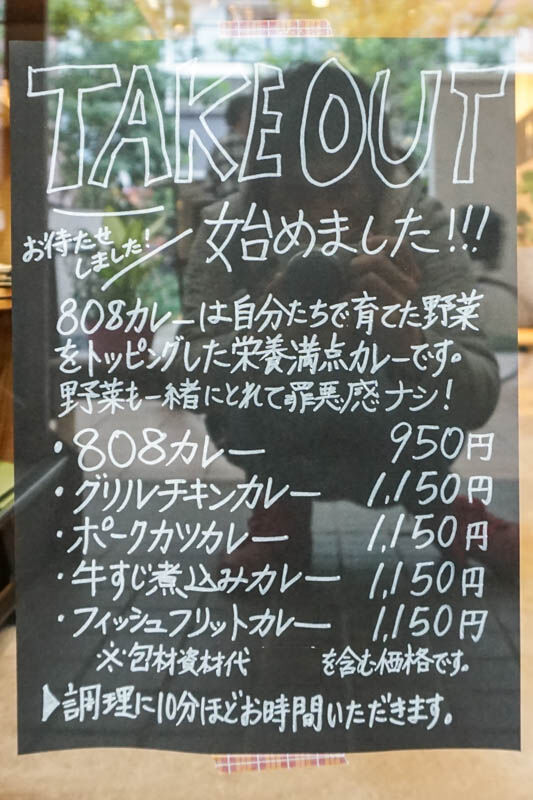 TAKE OUT
お待たせ
しました!
始めました!!!
808カレーは自分たちで育てた野菜
をトッピングした栄養満点カレーです。
野菜も一緒にとれて罪悪感ナシ!
・808カレー 950円
・グリルチキンカレー 1,150円
・ポークカツカレー 1,150円
・牛すじ煮込みカレー 1,150円
・フィッシュフリットカレー 1,150円
※包材資材代 を含む価格です。
▶調理に10分ほどお時間いただきます。